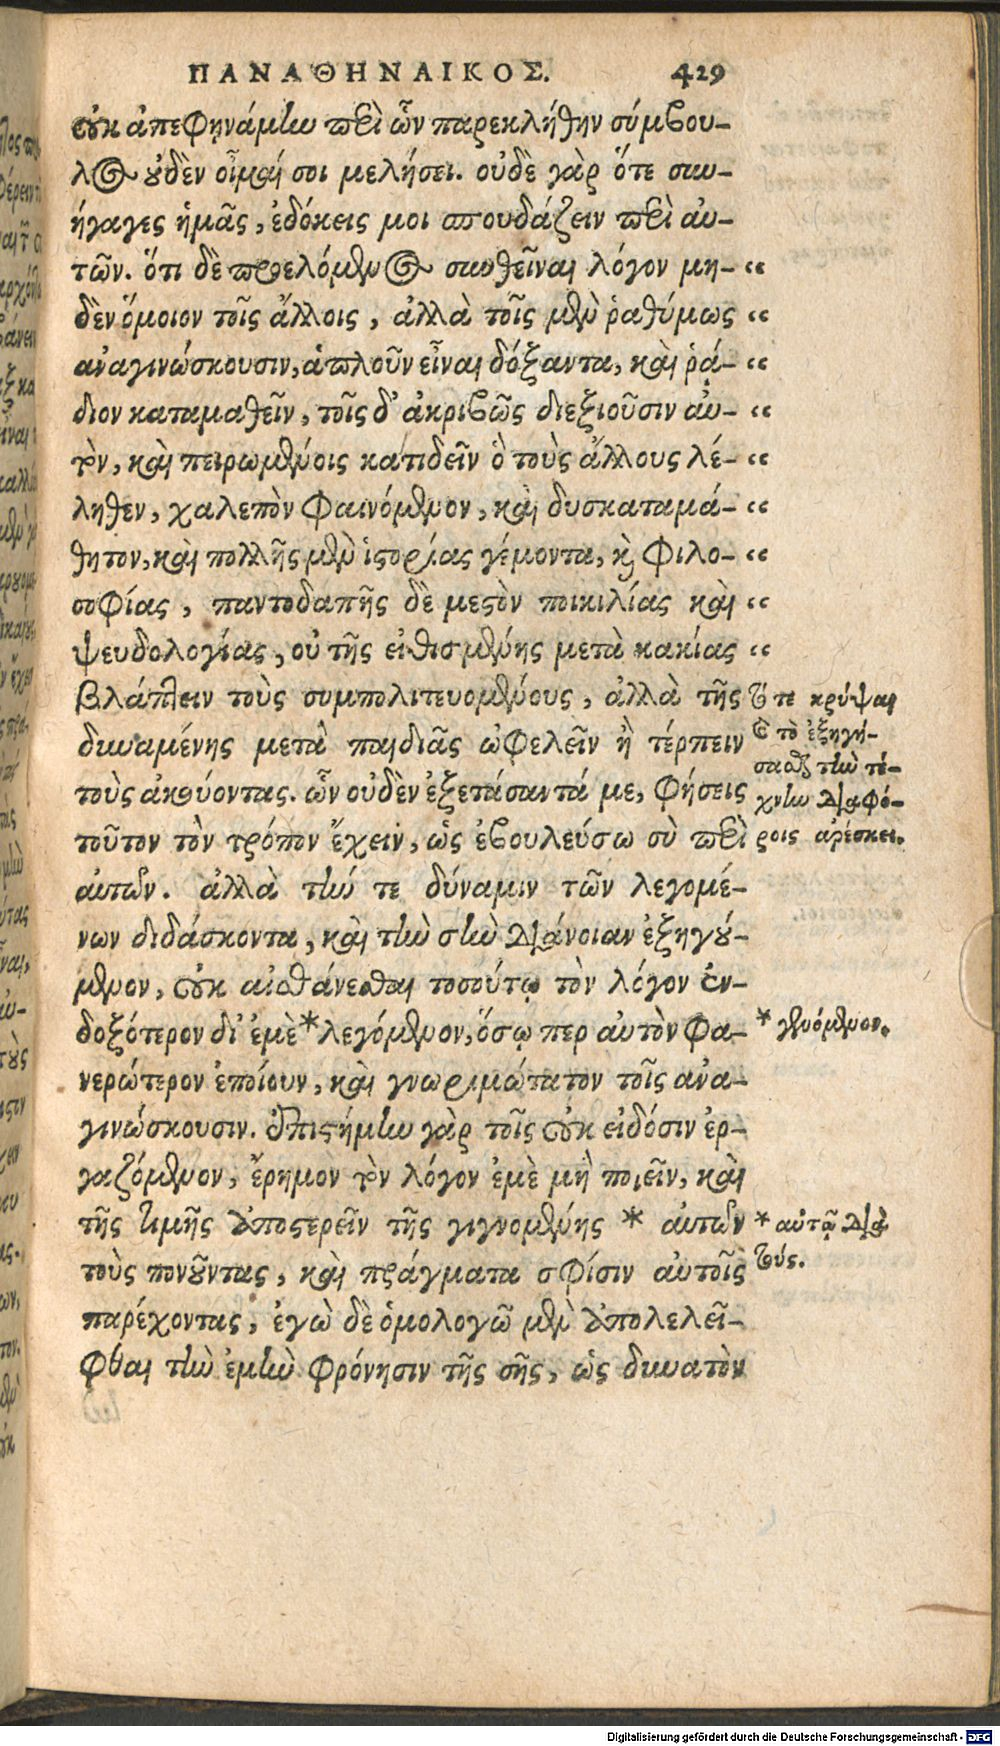 ΠΑΝΑΘΗΝΑΙΚΟΣ. 429
οὐκ ἀπεφηνάμην περὶ ὧν παρεκλήθην σύμβου-
λος οὐδὲν οἶμαί σοι μελήσει. οὐδὲ γὰρ ὅτε συν-
ήγαγες ἡμᾶς, ἐδόκεις μοι σπουδάζειν περὶ αὐ-
τῶν. ὅτι δὲ προελόμενος συνθεῖναι λόγον μη- “
δὲν ὅμοιον τοῖς ἄλλοις, ἀλλὰ τοῖς μὲν ῥαθύμως “
ἀναγινώσκουσιν, ἁπλοῦν εἶναι δόξαντα, καὶ ῥά- “
διον καταμαθεῖν, τοῖς δ' ἀκριβῶς διεξιοῦσιν αὐ- “
τὸν, καὶ πειρωμένοις κατιδεῖν ὃ τοὺς ἄλλους λέ- “
ληθεν, χαλεπὸν φαινόμενον, καὶ δυσκαταμά- “
θητον, καὶ πολλῆς μὲν ἱστορίας γέμοντα, καὶ φιλο- “
σοφίας, παντοδαπῆς δὲ μεστὸν ποικιλίας καὶ “
ψευδολογίας, οὐ τῆς εἰθισμένης μετὰ κακίας “
βλάπτειν τοὺς συμπολιτευομένους, ἀλλὰ τῆς
δυναμένης μετὰ παιδιᾶς ὠφελεῖν ἢ τέρπειν
τοὺς ἀκούοντας. ὧν οὐδὲν ἐξετάσαντά με, φήσεις
τοῦτον τὸν τρόπον ἔχειν, ὡς ἐβουλεύσω σὺ περὶ
αὐτῶν. ἀλλὰ τήν τε δύναμιν τῶν λεγομέ-
νων διδάσκοντα, καὶ τὴν σὴν διάνοιαν ἐξηγού-
μενον, οὐκ αἰσθάνεσθαι τοσούτῳ τὸν λόγον ἐν-
δοξότερον δι' ἐμὲ * λεγόμενον, ὅσῳ περ αὐτὸν φα-
νερώτερον ἐποίουν, καὶ γνωριμώτατον τοῖς ἀνα-
γινώσκουσιν. ἐπιστήμην γὰρ τοῖς οὐκ εἰδόσιν ἐρ-
γαζόμενον, ἔρημον τὸν λόγον ἐμὲ μὴ ποιεῖν, καὶ
τῆς τιμῆς ἀποστερεῖν τῆς γιγνομένης * αὐτῶν
τοὺς πονοῦντας, καὶ πράγματα σφίσιν αὐτοῖς
παρέχοντας, ἐγὼ δὲ ὁμολογῶ μὲν ἀπολελεῖ-
φθαι τὴν ἐμὴν φρόνησιν τῆς σῆς, ὡς δυνατὸν
τό τε κρύψαι
καὶ τὸ ἐξηγή-
σασθαι τὴν τέ-
χνην διαφό-
ροις ἀρέσκει.
* γενόμενον.
* αὐτῷ διὰ
τούς.
Digitalisierung gefördert durch die Deutsche Forschungsgemeinschaft - DFG